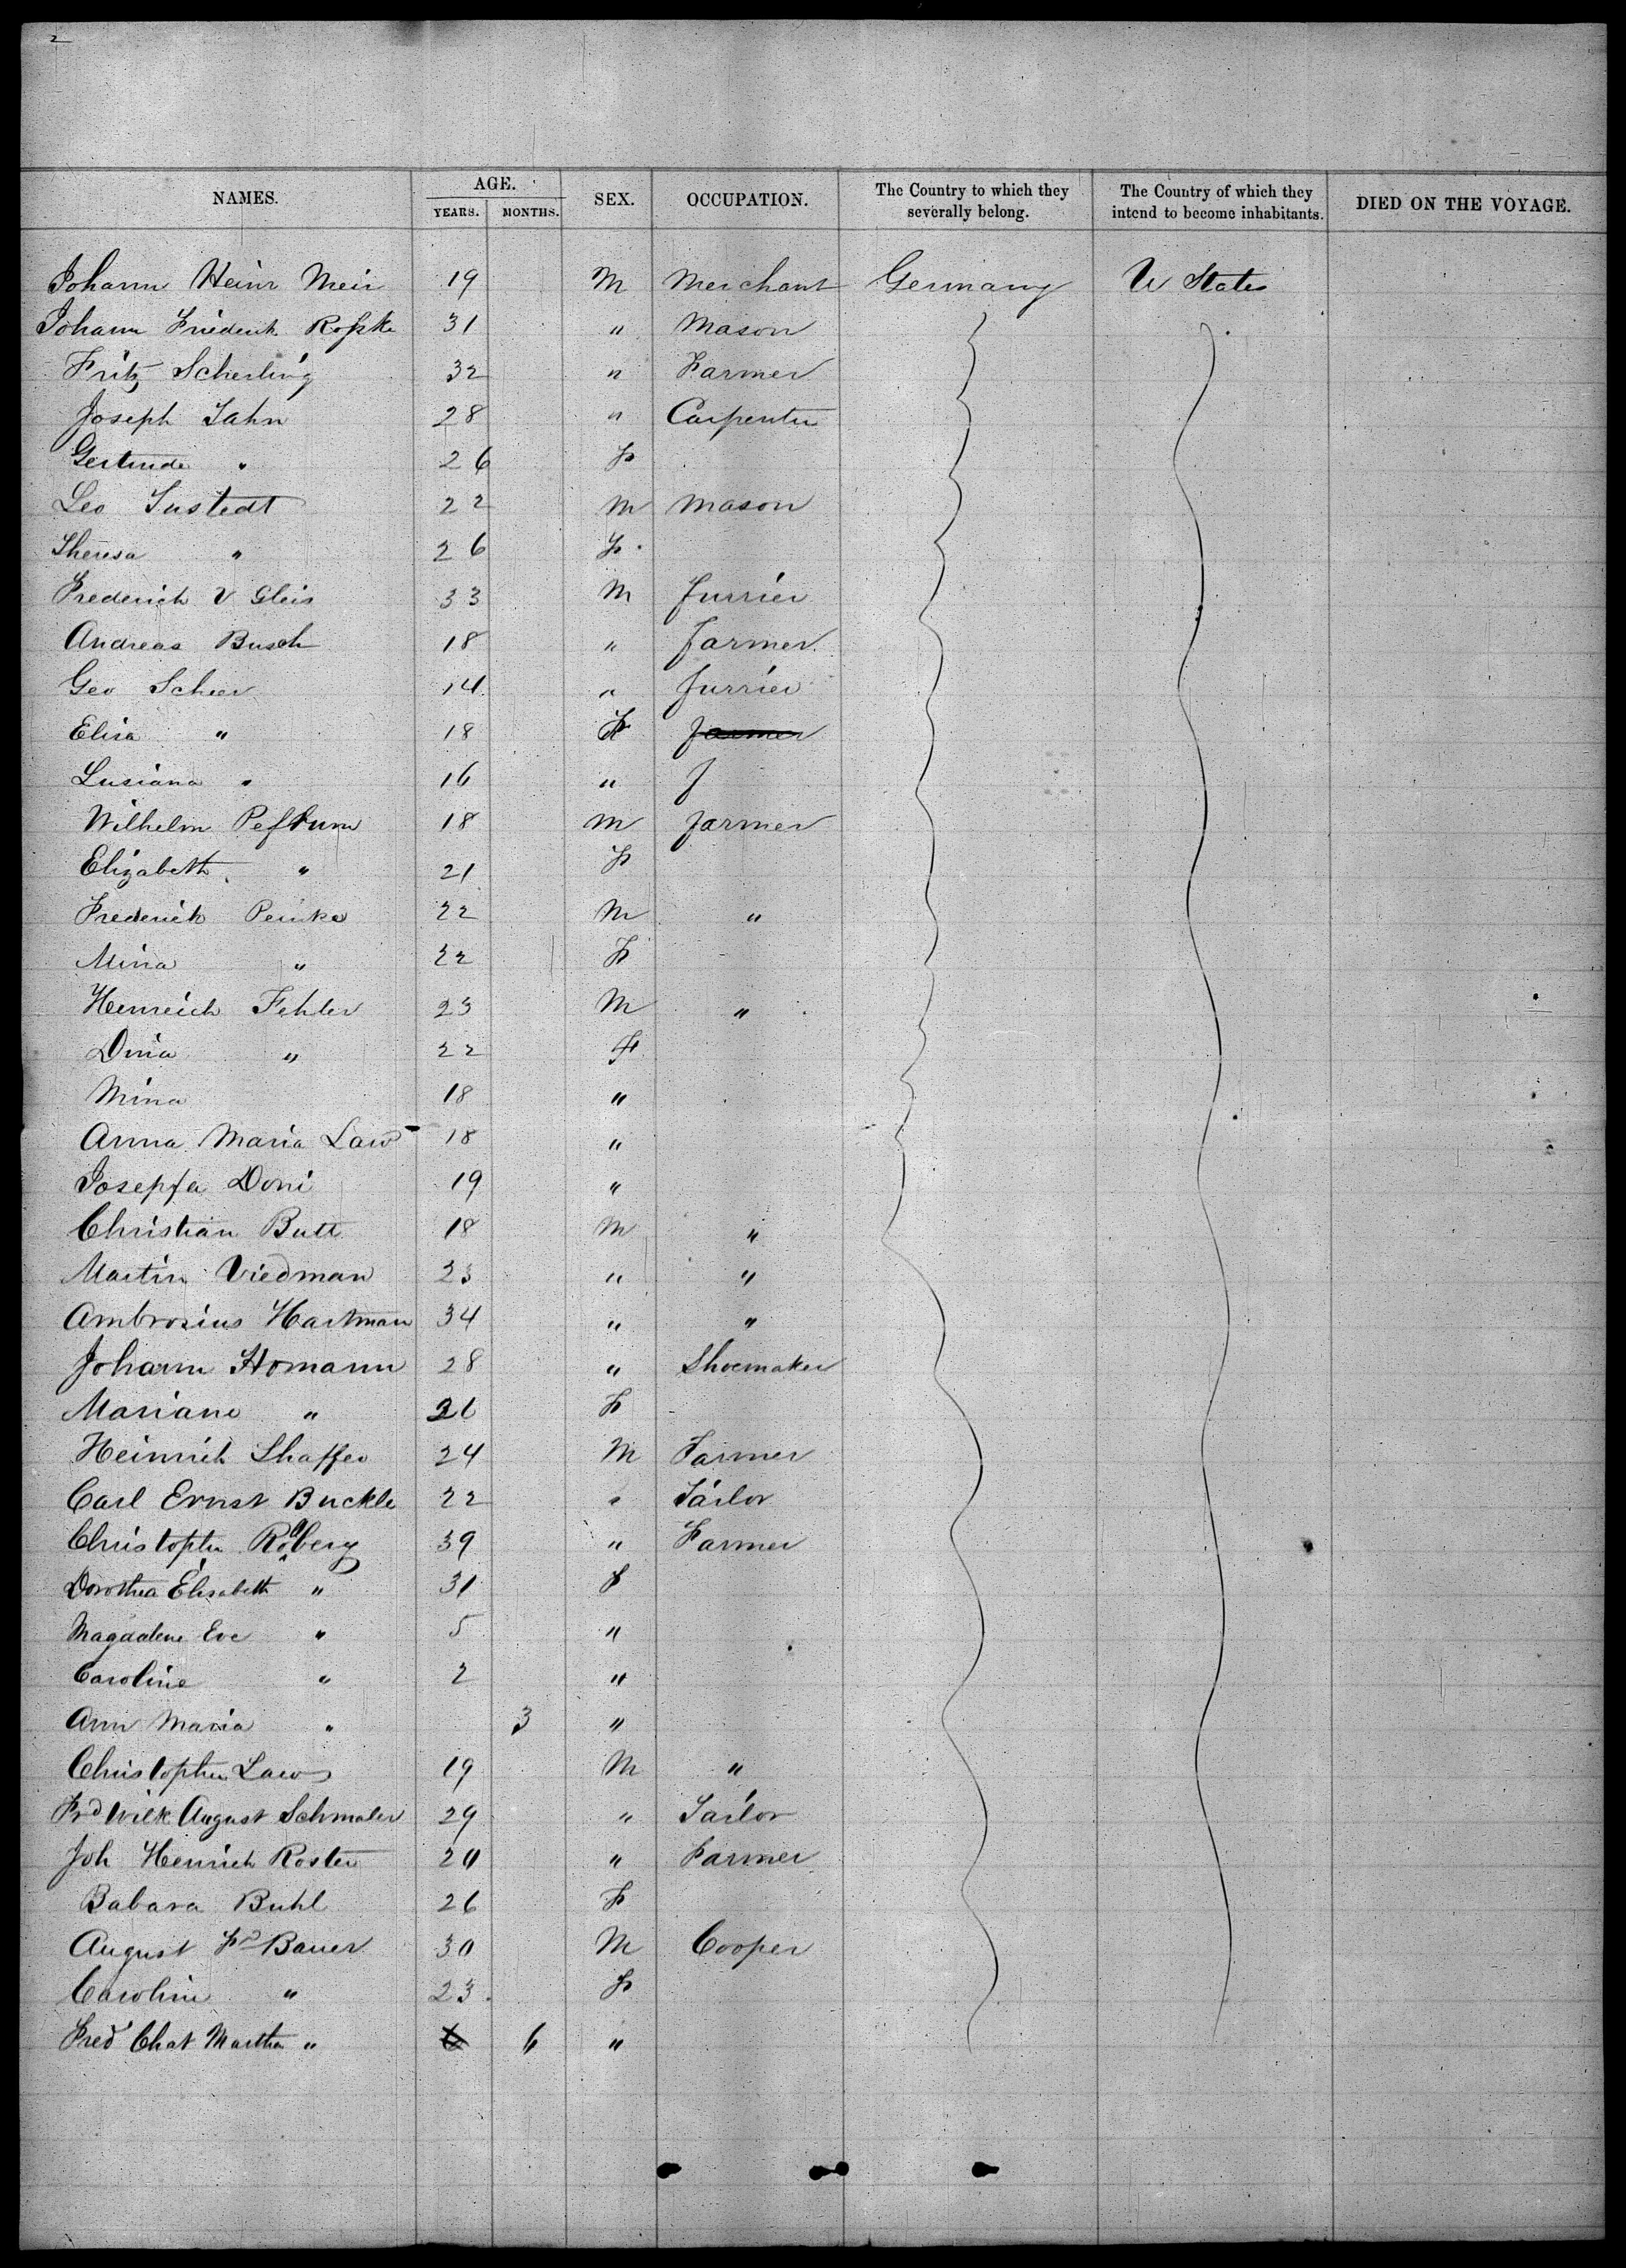 2
NAMES. AGE. YEARS. MONTHS. SEX. OCCUPATION. The Country to which they severally belong. The Country of which they intend to become inhabitants. DIED ON THE VOYAGE.
Johann Heinr Meir 19 M Merchant Germany U States
Johann Friederick Roßke 31 " Mason
Fritz Scherling 32 " Farmer
Joseph Jahn 28 " Carpenter
Gertrude " 26 F
Leo Sustedt 22 M Mason
Theresa " 26 F
Frederich V Gleis 33 M furrier
Andreas Busch 18 " farmer
Geo Scheer 14 " furrier
Elisa " 18 F farmer
Lusiana " 16 " f
Wilhelm 18 M farmer
Elizabeth " 21 F
Frederick Peinke 22 M "
Mina " 22 F
Heinreich Fehler 23 M "
Dina " 22 F
Mina 18 "
Anna Maria Law 18 "
Josepfa Doni 19 "
Christian Butt 18 M "
Martin Viedman 23 " "
Ambrosius Hartman 34 " "
Johann Homann 28 " Shoemaker
Mariane " F
Heinrich Shaffer 24 M Farmer
Carl Ernst Buckle 22 " Tailor
Christopher Raberg 39 " Farmer
Dorothea Elisabeth " 31 F
Magdalene Eve " 5 "
Caroline " 2 "
Ann Maria " 3 "
Christopher Law 19 M "
Frd Wilk August Schmaler 29 " Tailor
Joh Henrich Roster 20 " Farmer
Babara Buhl 26 F
August Fd Bauer 30 M Cooper
Caroline " 23 F
Fred Chat Martha " 6 "